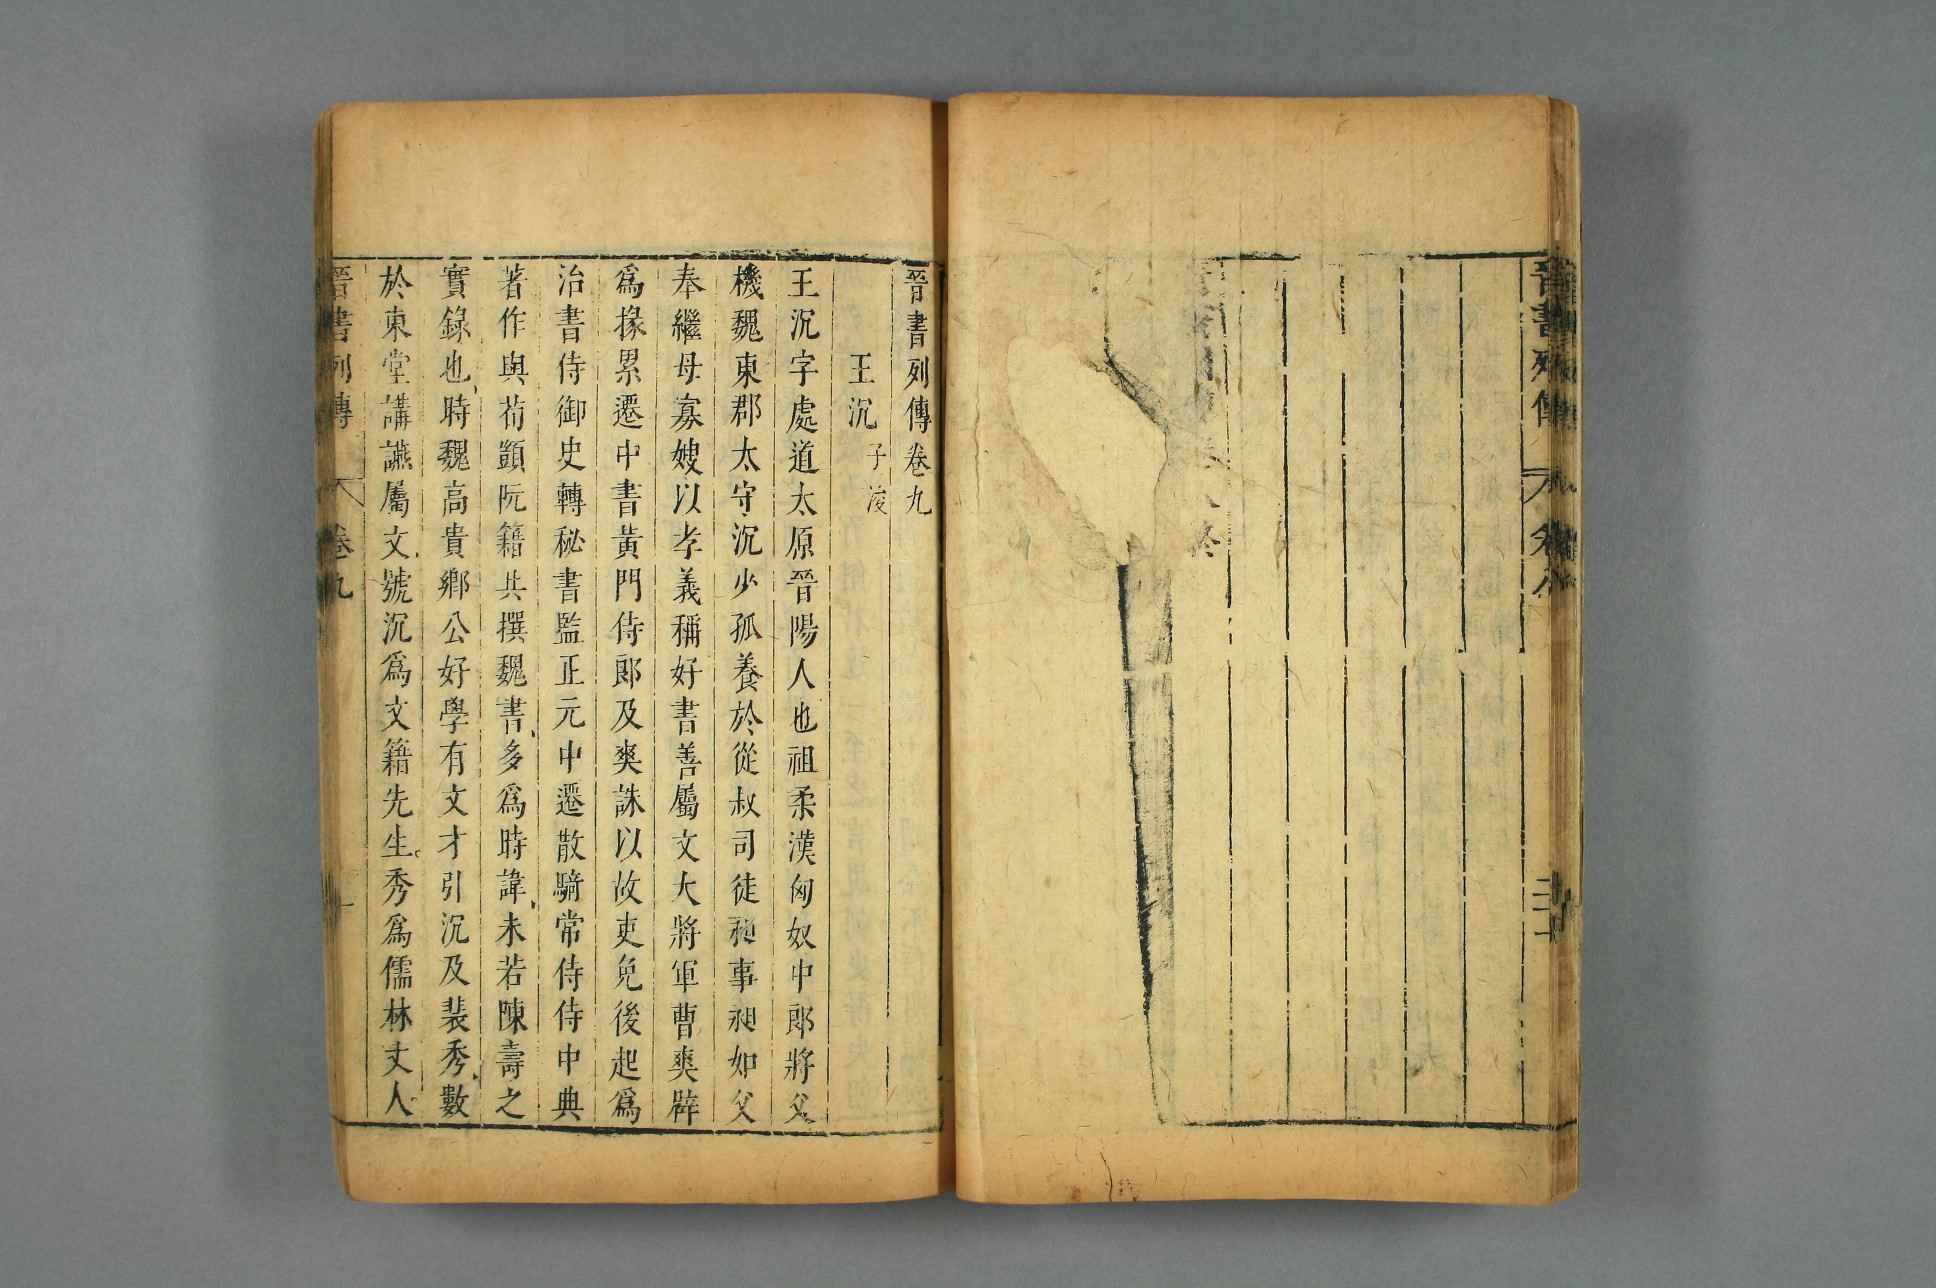 晉書列傳 卷八
二十
晉書列傳卷八終
晉書列傳卷九
王沉 子浚
王沉字處道太原晉陽人也祖柔漢匈奴中郎將父
機魏東郡太守沉少孤養於從叔司徒昶事昶如父
奉繼母寡嫂以孝義稱好書善屬文大將軍曹爽辟
爲掾累遷中書黃門侍郎及爽誅以故吏免後起爲
治書侍御史轉秘書監正元中遷散騎常侍侍中典
著作與荀顗阮籍共撰魏書多爲時諱未若陳壽之
實錄也時魏高貴鄉公好學有文才引沉及裴秀數
於東堂講讌屬文號沉爲文籍先生秀爲儒林丈人
晉書列傳 卷九
一